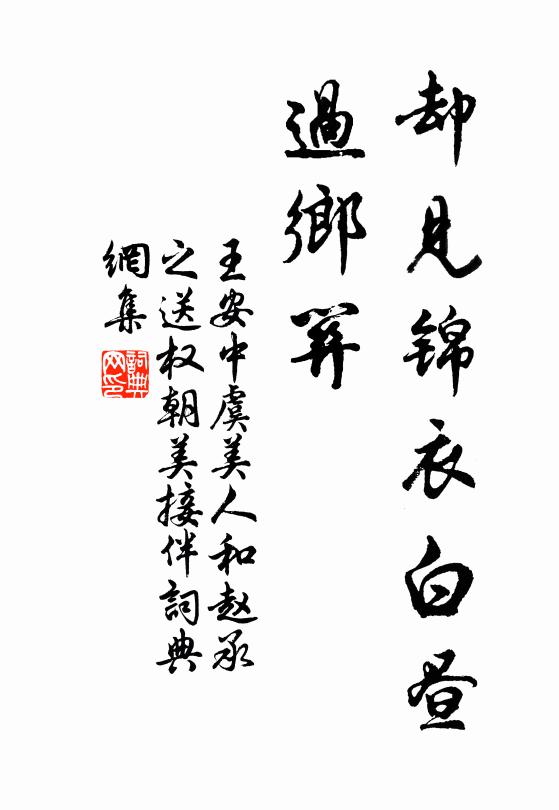 却見錦衣白昼
過鄉關
王安中虞美人和赵承
之送权朝美接伴詞典
網集
詞典網印